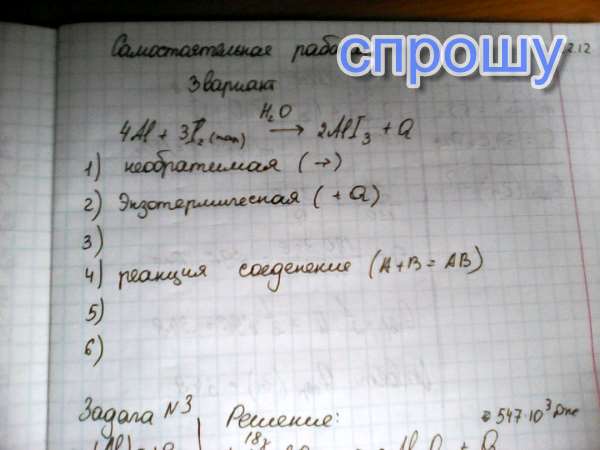 Самостоятельная спрошу 2.12
3 вариант
H₂O
4Al + 3I₂ (тв) → 2AlI₃ + Q
1) необратимая (→)
2) Экзотермическая (+Q)
3)
4) реакция соеденение (A+B = AB)
5)
6)
Задача N3 Решение: 547·10³
18г